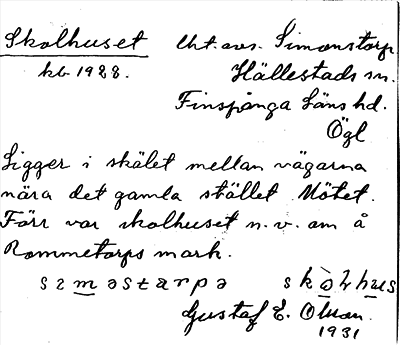 Skolhuset Uht. avs. Simonstorp
kb 1928. Hällestads sn.
Finspånga Läns hd.
Ögl
Ligger i skälet mellan vägarna
nära det gamla stället Mötet.
Förr var skolhuset n.v. om å
Rommetorps mark.
Gustaf E. Olsson.
1931